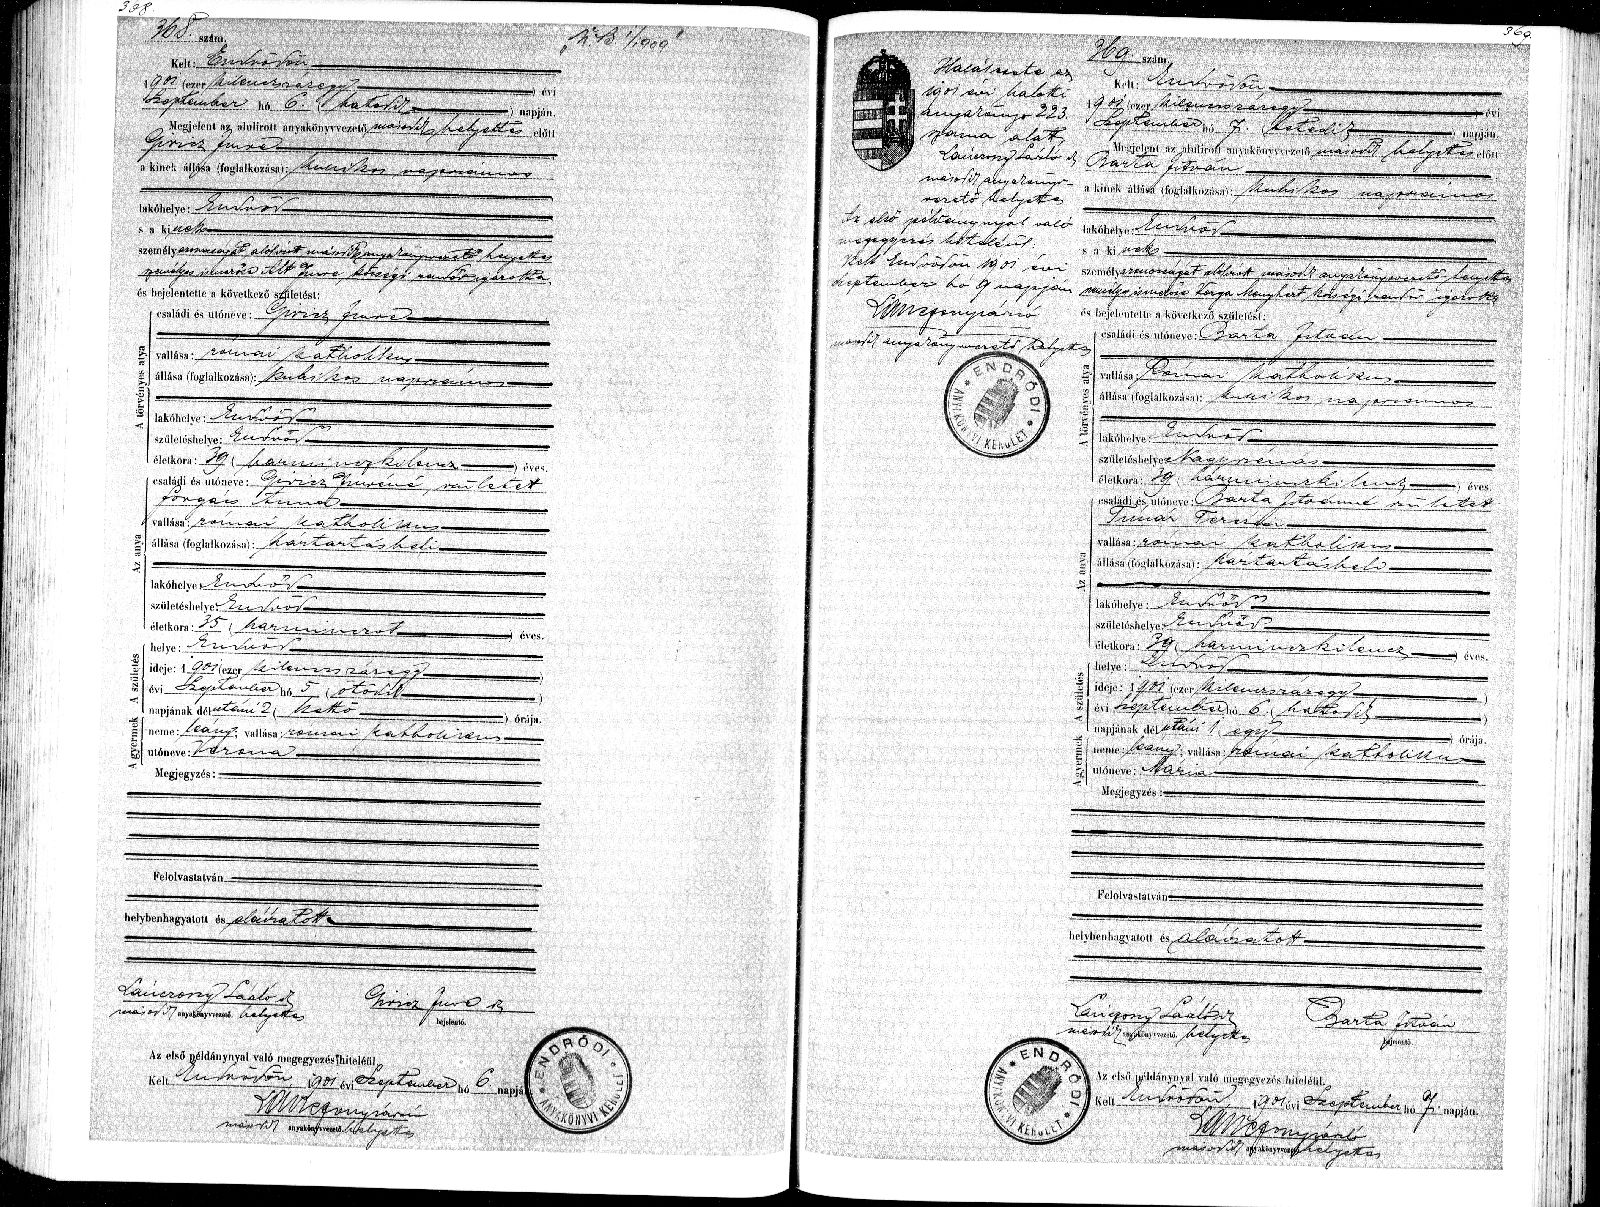 368.
368. szám.
Kelt: Endrődön
1901 (ezer kilenczszázegy) évi
Szeptember hó 6. (hatodik) napján.
Megjelent az alulirott anyakönyvvezető második helyettes előtt
Giricz Imre
a kinek állása (foglalkozása): kubikos napszámos
lakóhelye: Endrőd
s a kinek
személyazonosságát alulirott második anyakönyvvezető helyettes
személyes ismerőse Alt Imre községi rendőr igazolta,
és bejelentette a következő születést:
A törvényes atya
családi és utóneve: Giricz Imre
vallása: római katholikus
állása (foglalkozása): kubikos napszámos
lakóhelye: Endrőd
születéshelye: Endrőd
életkora: 39 (harminczkilencz) éves.
Az anya
családi és utóneve: Giricz Imréné, született
Forgács Anna
vallása: római katholikus
állása (foglalkozása): háztartásbeli
lakóhelye: Endrőd
születéshelye: Endrőd
életkora: 35 (harminczöt) éves.
A születés
helye: Endrőd
ideje: 1901 (ezer kilenczszázegy)
évi Szeptember hó 5 (ötödik)
napjának délutáni 2 (kettő) órája.
A gyermek
neme: leány; vallása: római katholikus
utóneve: Verona
Megjegyzés:
Felolvastatván
helybenhagyatott és aláiratott
Lánczony László sk
második anyakönyvvezető helyettes
Giricz Imre sk
bejelentő.
Az első példánynyal való megegyezés hiteléül.
Kelt Endrődön, 1901 évi Szeptember hó 6 napján.
második anyakönyvvezető helyettes
ENDRŐDI
ANYAKÖNYVI KERÜLET
369.
Halálesete az
1901 évi haloti
anyakönyv 223
szama alatt
Lánczony László sk
második anyakönyv-
vezető helyettes
Az első példánynyal való
megegyezés hiteléül.
Kelt Endrődön 1901 évi
szeptember hó 9 napján
második anyakönyvvezető helyettes
ENDRŐDI
ANYAKÖNYVI KERÜLET
369. szám.
Kelt: Endrődön
1901 (ezer kilenczszázegy) évi
Szeptember hó 7. (hetedik) napján.
Megjelent az alulirott anyakönyvvezető második helyettes előtt
Barta István
a kinek állása (foglalkozása): kubikos napszámos
lakóhelye: Endrőd
s a kinek
személyazonosságát alulirott második anyakönyvvezető helyettes
személyes ismerőse Varga Menyhert községi rendőr igazolta,
és bejelentette a következő születést:
A törvényes atya
családi és utóneve: Barta István
vallása: Római katholikus
állása (foglalkozása): kubikos napszamos
lakóhelye: Endrőd
születéshelye:
életkora: 39 (harminczkilencz) éves.
Az anya
családi és utóneve: Barta Istvánné született
Timár Terézia
vallása: római katholikus
állása (foglalkozása): háztartásbeli
lakóhelye: Endrőd
születéshelye: Endrőd
életkora: 39 (harminczkilencz) éves.
A születés
helye: Endrőd
ideje: 1901 (ezer kilenczszázegy)
évi Szeptember hó 6 (hatodik)
napjának délutáni 1 (egy) órája.
A gyermek
neme: leány; vallása: római katholikus
utóneve: Mária
Megjegyzés:
Felolvastatván
helybenhagyatott és aláiratott
Lánczony László sk
második anyakönyvvezető helyettes
Barta István
bejelentő.
Az első példánynyal való megegyezés hiteléül.
Kelt Endrődön, 1901 évi Szeptember hó 7. napján.
második anyakönyvvezető helyettes
ENDRŐDI
ANYAKÖNYVI KERÜLET